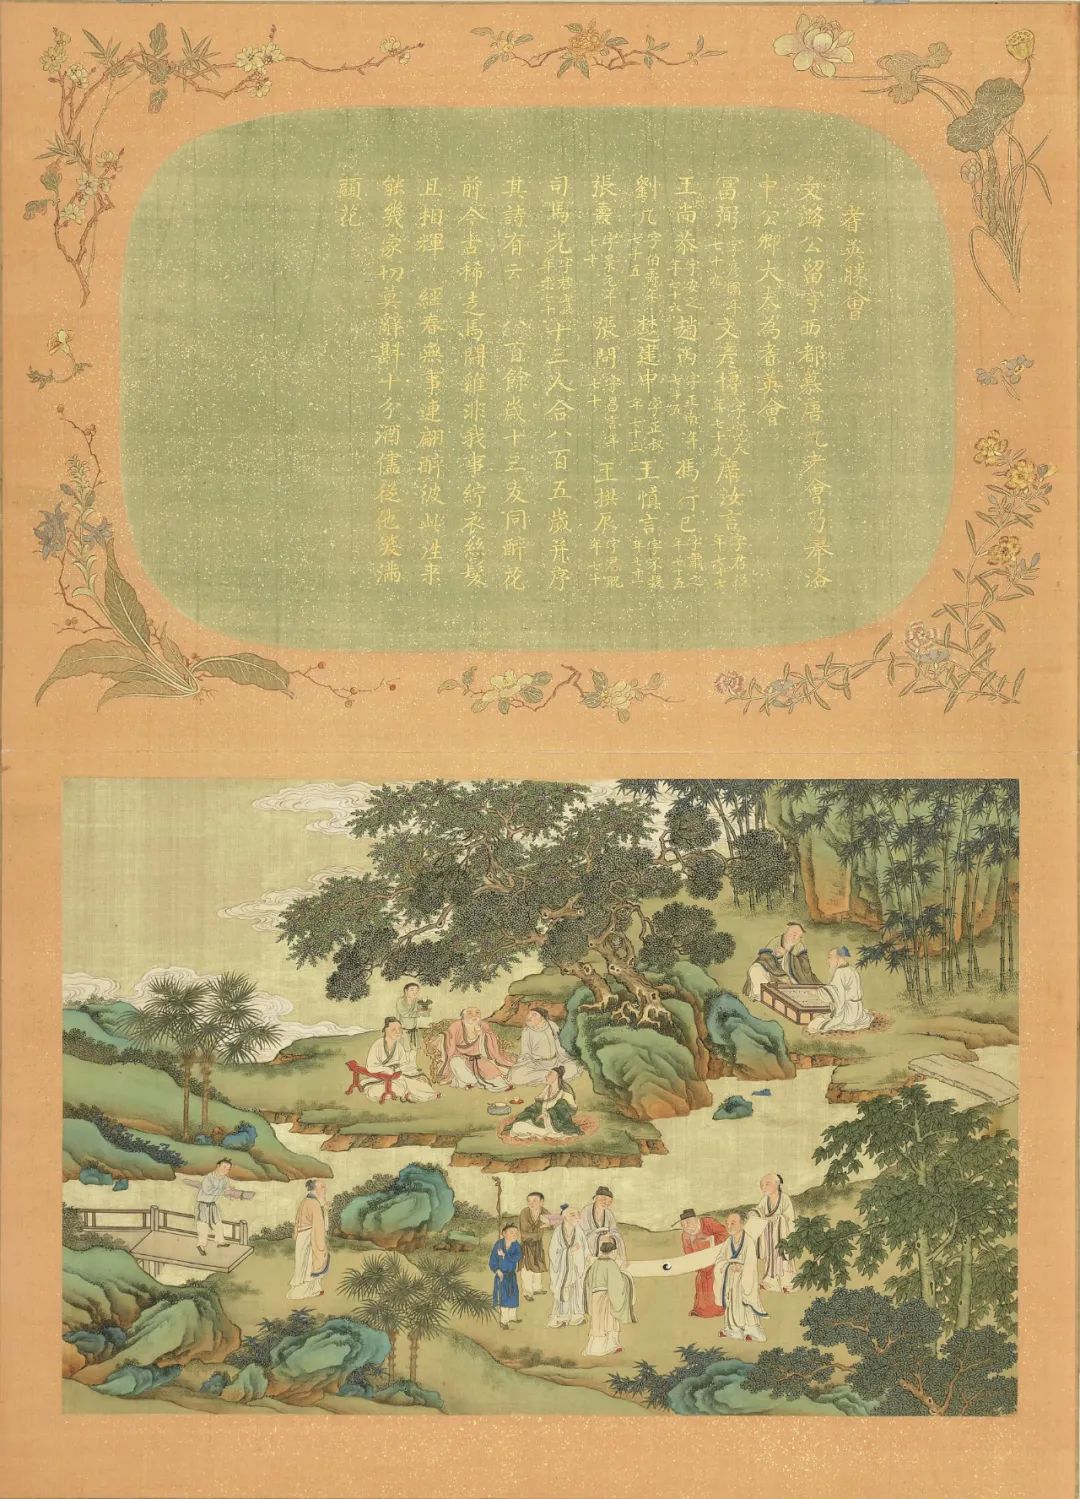 耆英勝會
文潞公留守西都慕唐九老會乃洛
中公卿大夫為耆英會
富弼字彥國年七十九文彥博字寬夫年七十九席汝言字君從年七十七
王尚恭字安之年七十六趙丙字正南年七十五馮行己字肅之年七十五
劉几字伯壽年七十五楚建中字正叔年七十三王慎言字不疑年七十二
張燾字景元年七十張問字昌言年七十王拱辰字君貺年七十
司馬光字君實年十三人合八百五歲并序
其詩有云百餘歲十三友同醉花
前今古稀走馬鬪雞非我事紵衣絲髮
且相輝經春無事連翩醉彼此往來
能幾家切莫辭斟十分酒儘從他笑滿
頭花